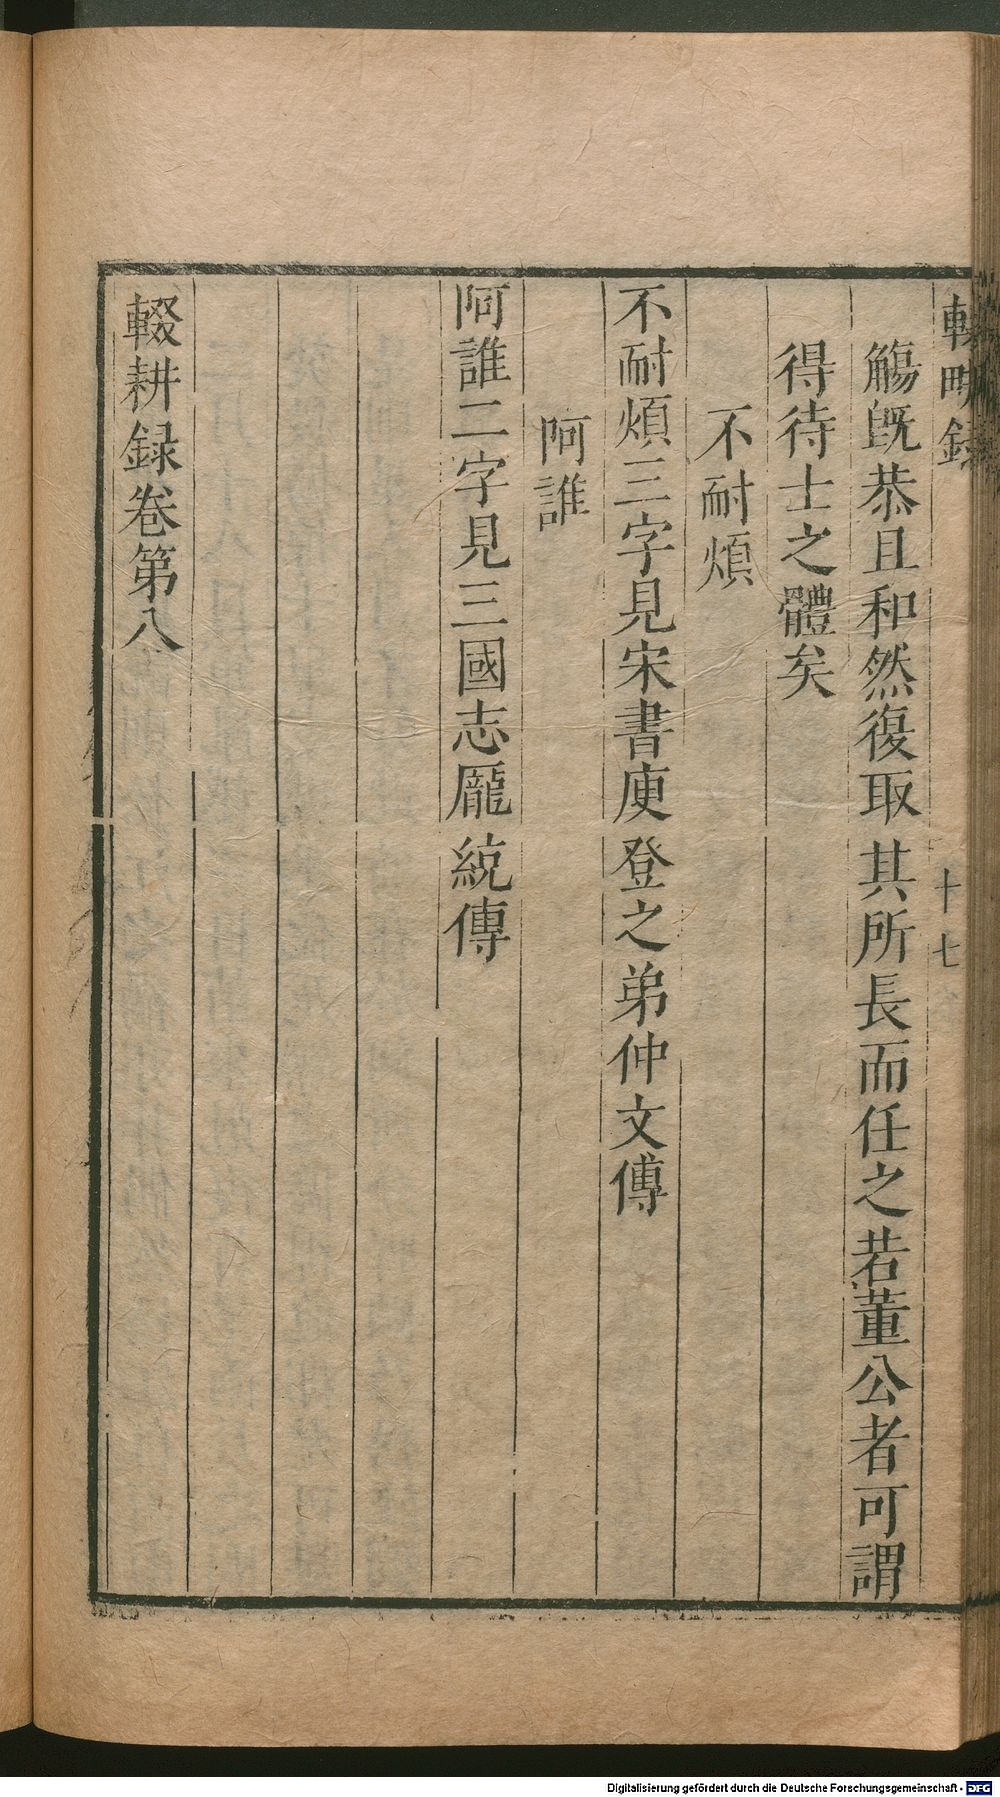 觴旣恭且和然復取其所長而任之若董公者可謂
得待士之體矣
不耐煩
不耐煩三字見宋書庾登之弟仲文傳
阿誰
阿誰二字見三國志龐統傳
輟耕録卷第八
十七
Digitalisierung gefördert durch die Deutsche Forschungsgemeinschaft - DFG